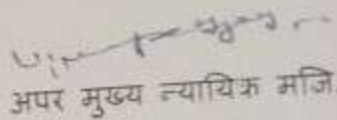 अपर मुख्य न्यायिक मजि